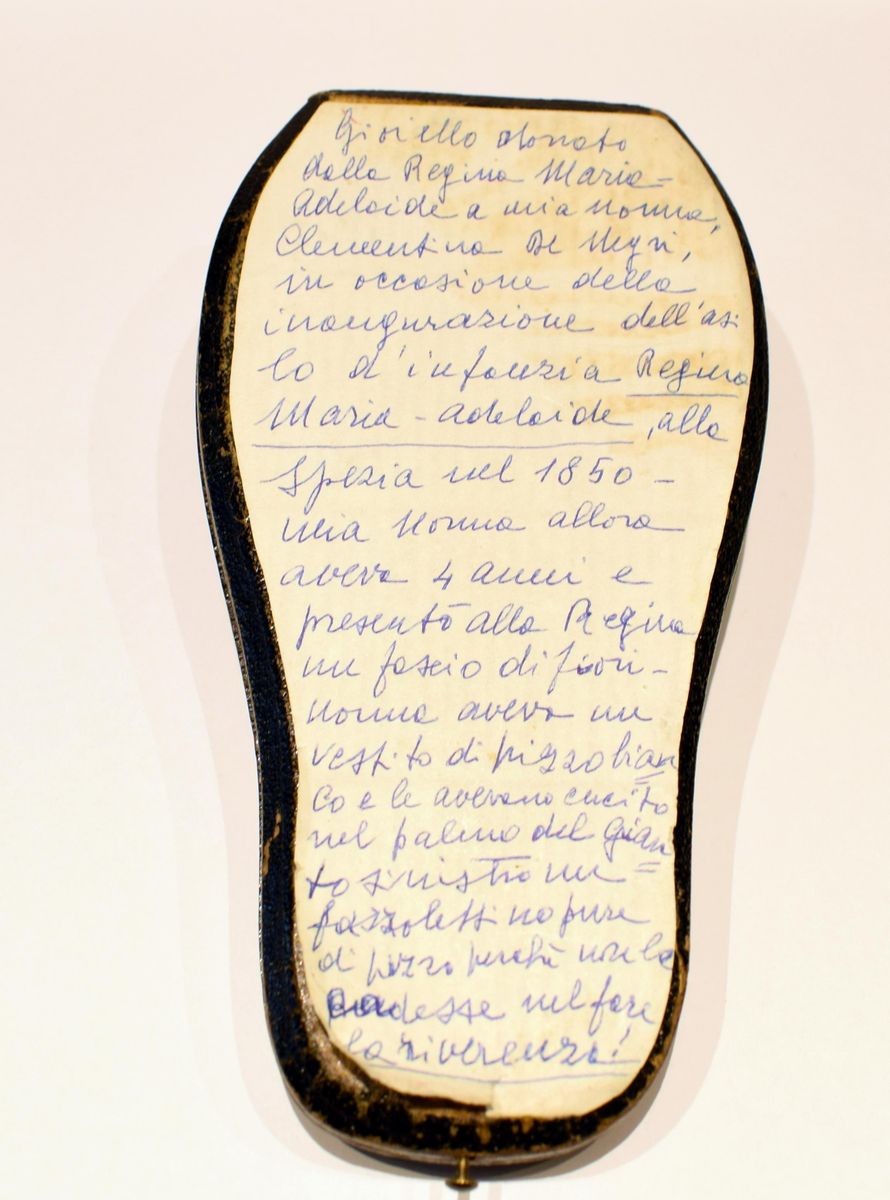 Gioiello donato
dalla Regina Maria-
Adelaide a mia nonna,
Clementina De Negri,
in occasione della
inaugurazione dell'asi
lo d'infanzia Regina
Maria-Adelaide, alla
Spezia nel 1850 -
mia nonna allora
aveva 4 anni e
presentò alla Regina
un fascio di fiori -
nonna aveva un
vestito di pizzo bian
co e le avevano cucito
nel palmo del Guan
to sinistro un
fazzolettino pure
di pizzo perché non le
cadesse nel fare
la riverenza!